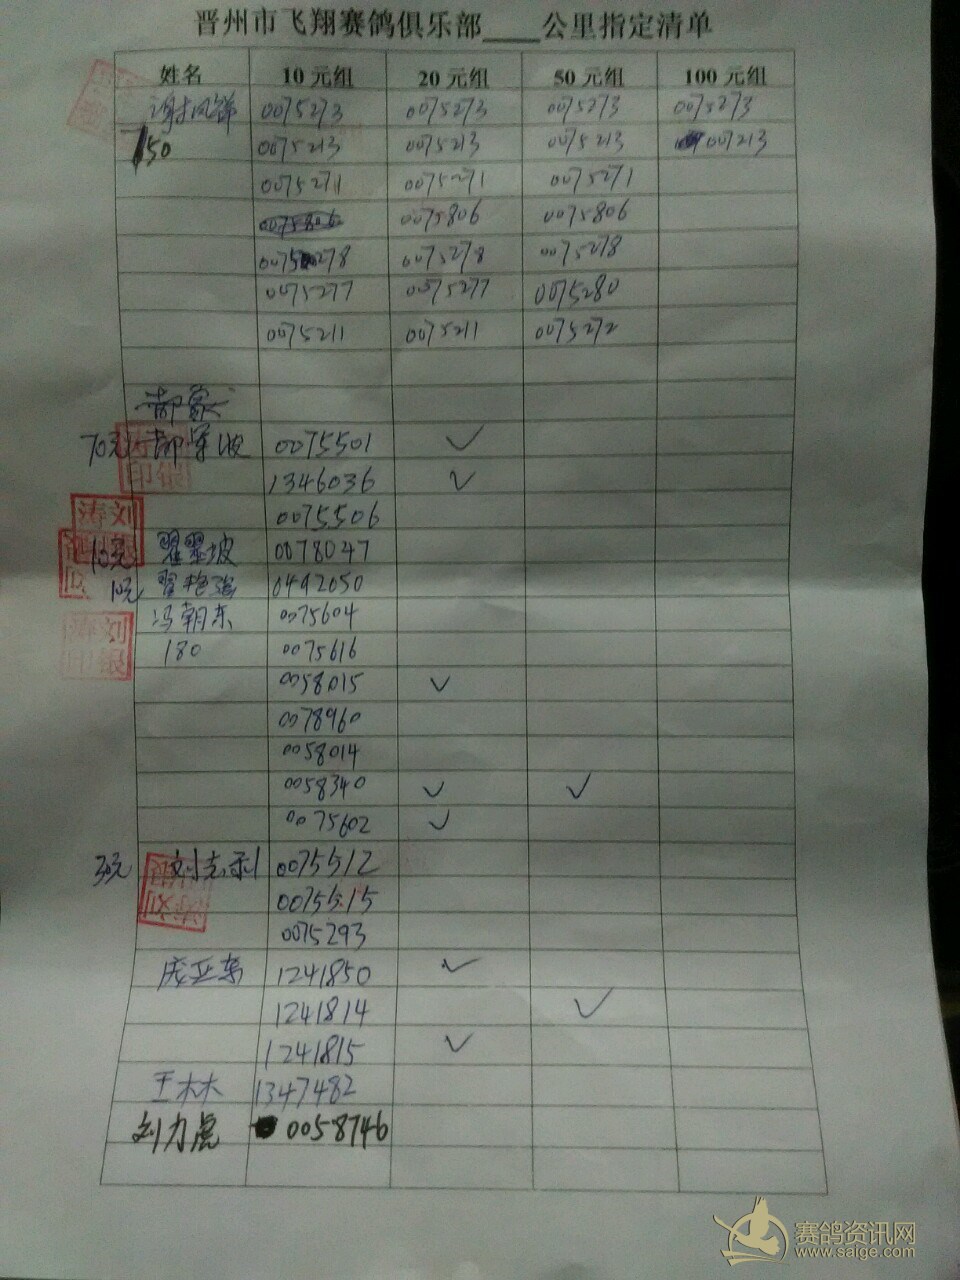 晋州市飞翔赛鸽俱乐部____公里指定清单
姓名 10元组 20元组 50元组 100元组
0075273 0075273 0075273 0075273
150 0075213 0075213 0075213 007213
0075271 0075271 0075271
0075806 0075806 0075806
0075278 0075278 0075278
0075277 0075277 0075280
0075211 0075211 0075272
70元 0075501 ✓
1346036 ✓
0075506
10元 0078047
10元 0492050
冯朝东 0075604
180 0075616
0058015 ✓
0078960
0058014
0058340 ✓ ✓
0075602 ✓
30元 0075512
0075515
0075293
1241850 ✓
1241814 ✓
1241815 ✓
王林林 1347482
刘力虎 0058746
刘银涛印
赛鸽资讯网
www.saige.com